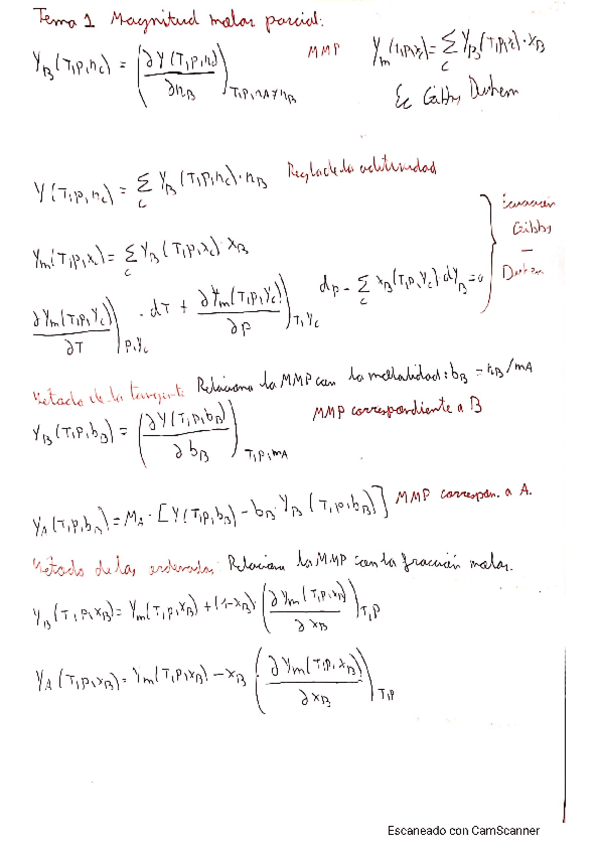 Tema 1 Magnitud molar parcial:
Y_B (T,p,n_c) = (∂Y(T,p,n_c)/∂n_B)_T,p,n_A≠n_B MMP Y_m(T,p,x_c) = Σ_c Y_B(T,p,x_c)·x_B
Ec Gibbs Duhem
Y(T,p,n_c) = Σ_c Y_B(T,p,n_c)·n_B Regla de la aditividad
Y_m(T,p,x_c) = Σ_c Y_B(T,p,x_c)·x_B
∂Y_m(T,p,Y_c)/∂T)_p,Y_c · dT + ∂Y_m(T,p,Y_c)/∂p)_T,Y_c dp - Σ_c x_B(T,p,Y_c) dY_B = 0
Ecuación
Gibbs
–
Duhem
Método de la tangente: Relaciona la MMP con la molalidad: b_B = n_B/m_A
Y_B(T,p,b_B) = (∂Y(T,p,b_B)/∂b_B)_T,p,m_A MMP correspondiente a B
Y_A(T,p,b_B) = M_A · [Y(T,p,b_B) - b_B · Y_B(T,p,b_B)] MMP correspon. a A.
Método de las ordenadas: Relaciona la MMP con la fracción molar.
Y_B(T,p,x_B) = Y_m(T,p,x_B) + (1-x_B) (∂Y_m(T,p,x_B)/∂x_B)_T,p
Y_A(T,p,x_B) = Y_m(T,p,x_B) - x_B (∂Y_m(T,p,x_B)/∂x_B)_T,p
Escaneado con CamScanner